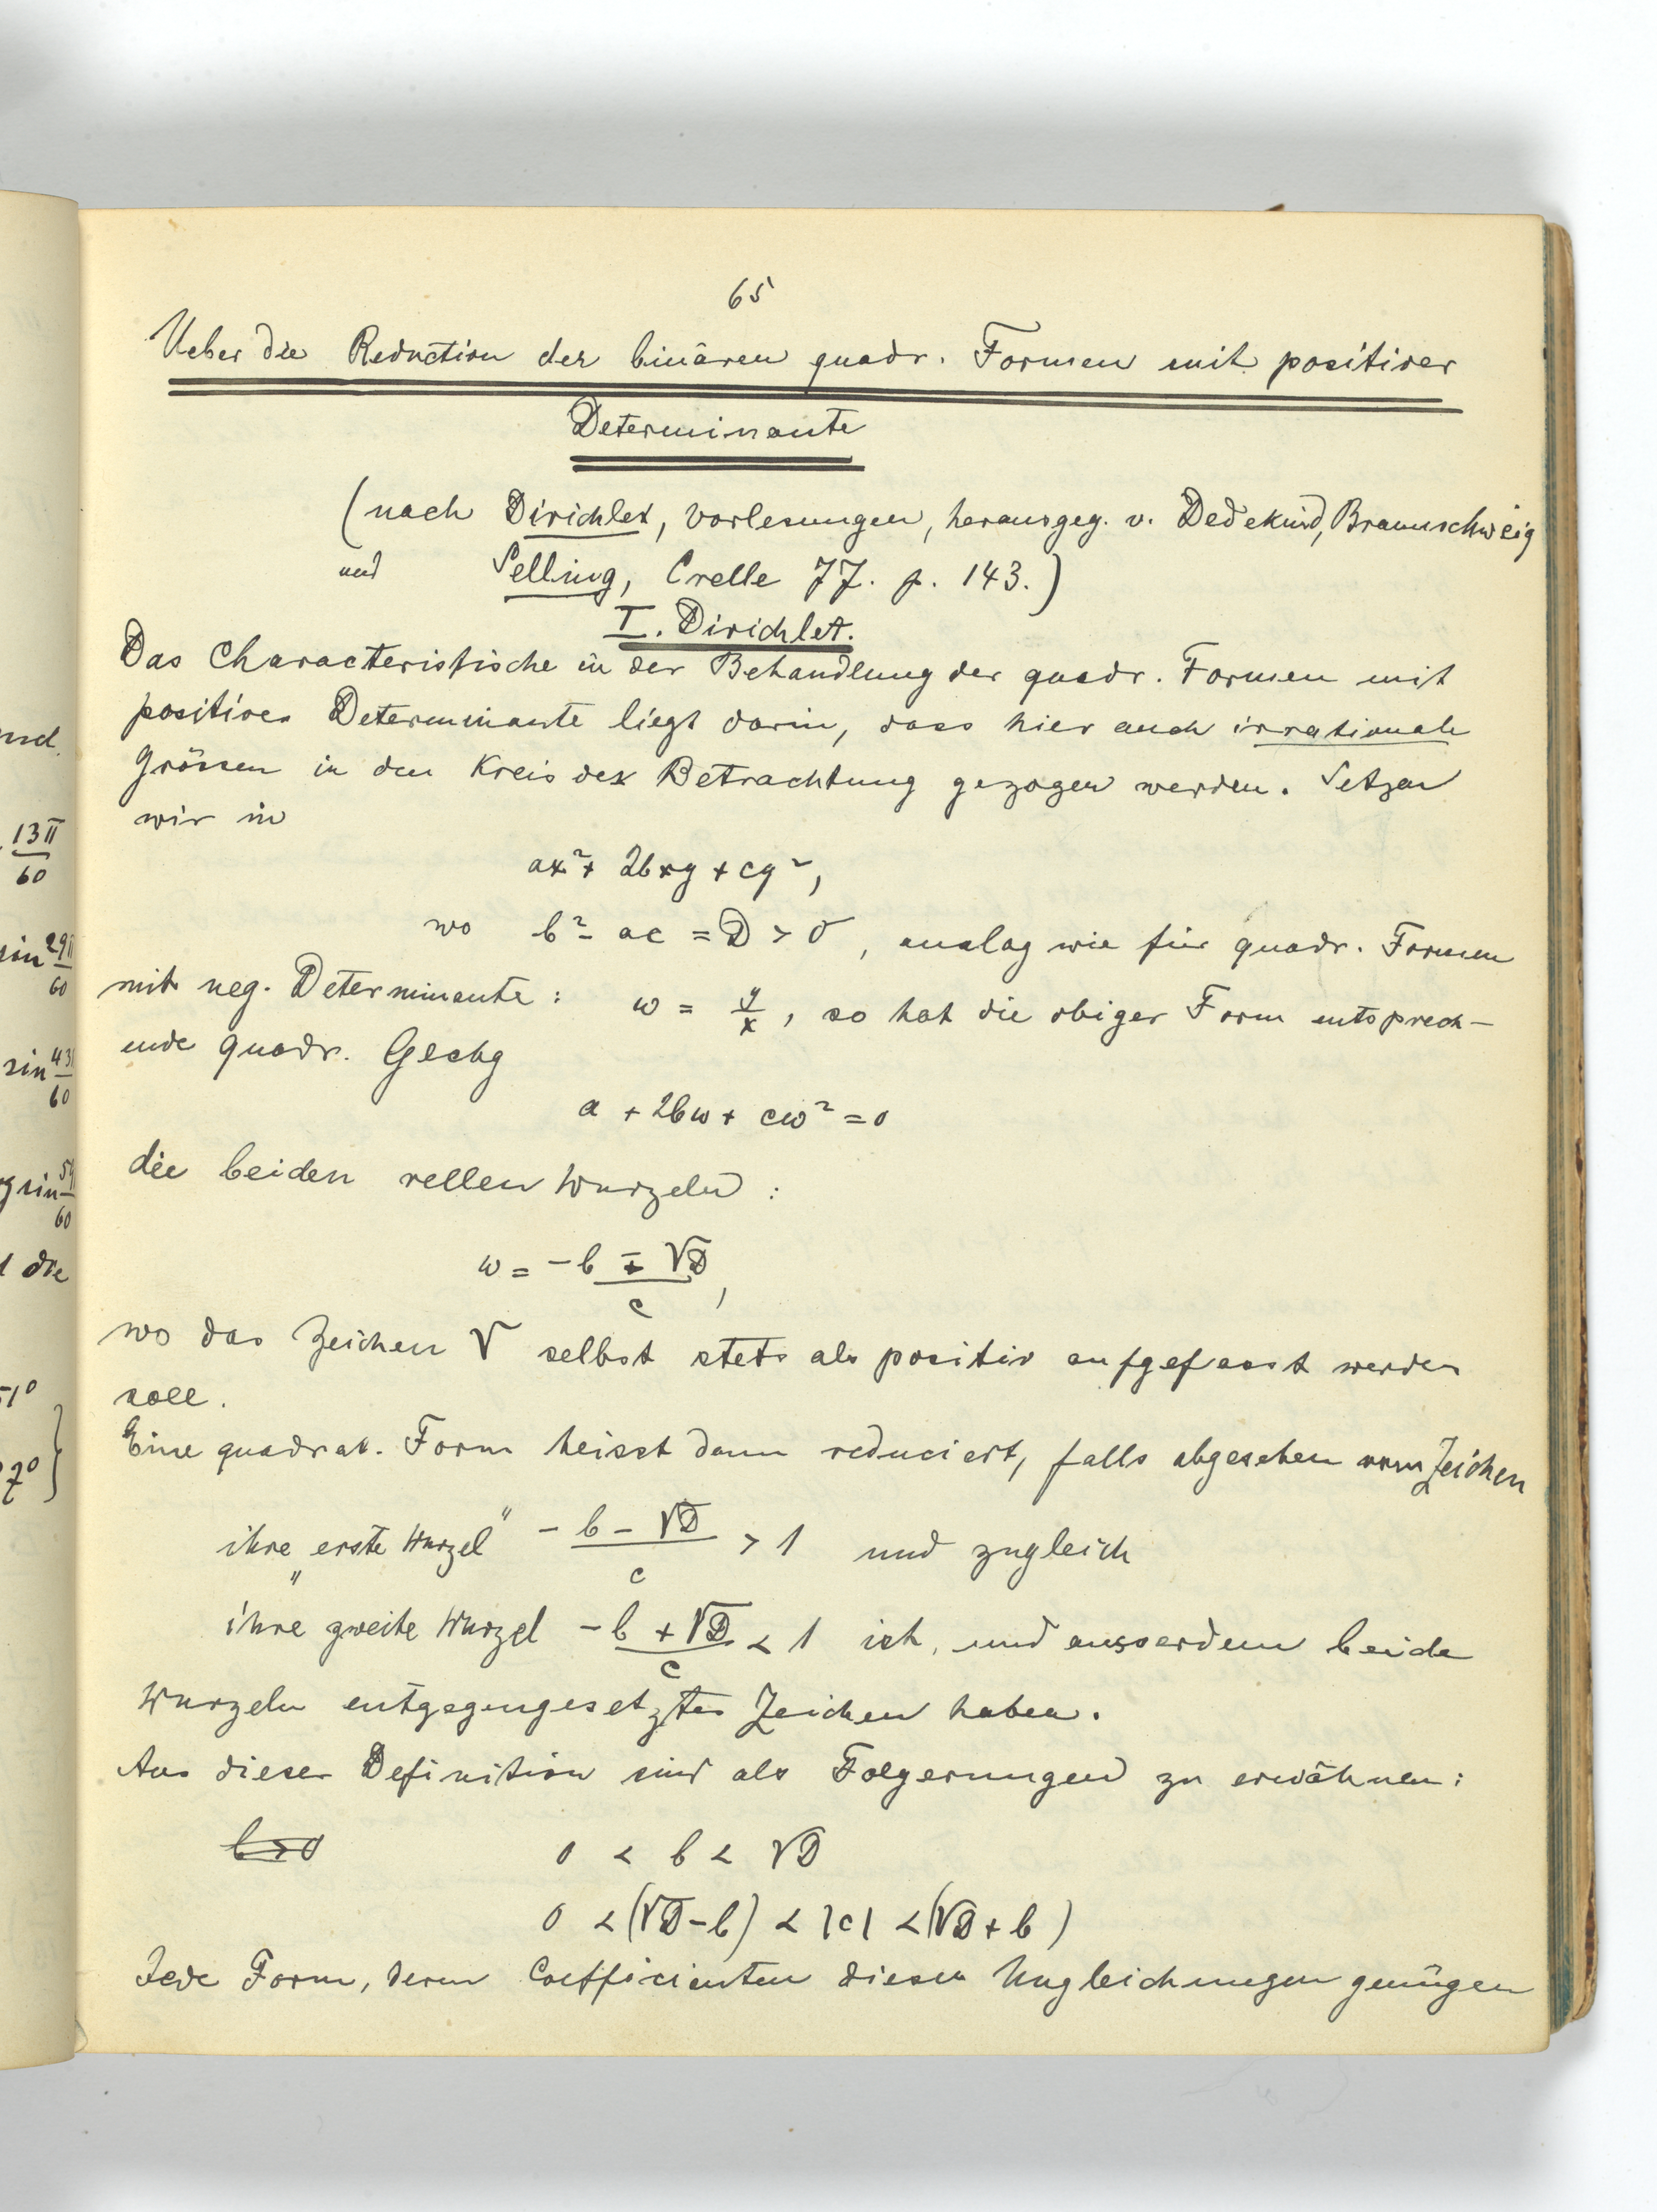 65
Ueber die Reduction der binären quadr. Formen mit positiver
Determinante
(nach Dirichlet, Vorlesungen, herausgeg. v. Dedekind, Braunschweig
und Selling, Crelle 77. p. 143.)
I. Dirichlet.
Das Characteristische in der Behandlung der quadr. Formen mit
positiver Determinante liegt darin, dass hier auch irrationale
Grössen in den Kreis der Betrachtung gezogen werden. Setzen
wir in
ax² + 2bxy + cy²,
wo b² - ac = D > 0, analog wie für quadr. Formen
mit neg. Determinante: ω = y/x, so hat die obiger Form entsprech-
ende quadr. Glchg
a + 2bω + cω² = 0
die beiden rellen Wurzeln:
ω = (-b ∓ √D)/c,
wo das Zeichen √ selbst stets als positiv aufgefasst werden
soll.
Eine quadrat. Form heisst dann reduciert, falls abgesehen vom Zeichen
ihre "erste Wurzel" (-b - √D)/c > 1 und zugleich
ihre "zweite Wurzel (-b + √D)/c < 1 ist, und ausserdem beide
Wurzeln entgegengesetztes Zeichen haben.
Aus dieser Definition sind als Folgerungen zu erwähnen:
b>0 0 < b < √D
0 < (√D - b) < |c| < (√D + b)
Jede Form, deren Coefficienten diesen Ungleichungen genügen
nd.
13π/60
sin 29π/60
sin 43/60
g sin 5/60
die
51°
7° }